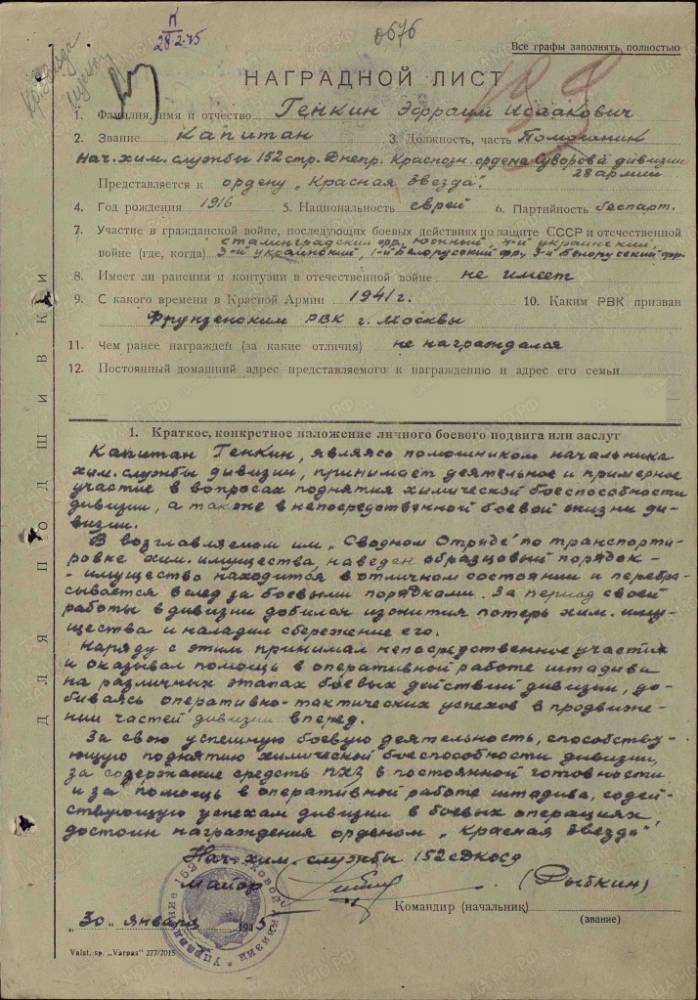 П
28-2-45
0676
Все графы заполнять полностью
НАГРАДНОЙ ЛИСТ
1. Фамилия, имя и отчество Генкин Эфраим Исаакович
2. Звание капитан 3. Должность, часть Помощник
Нач. хим. службы 152 стр. Днепр. Краснозн. ордена Суворова дивизии
28 армии
Представляется к ордену „Красная Звезда".
4. Год рождения 1916 5. Национальность еврей 6. Партийность беспарт.
7. Участие в гражданской войне, последующих боевых действиях по защите СССР и отечественной
сталинградский фр., Южный, 4-й украинский,
войне (где, когда) 3-й украинский, 1-й Белорусский фр., 3-й белорусский фр.
8. Имеет ли ранения и контузии в отечественной войне не имеет
9. С какого времени в Красной Армии 1941 г. 10. Каким РВК призван
Фрунзенским РВК г. Москвы
11. Чем ранее награжден (за какие отличия) не награждался
12. Постоянный домашний адрес представляемого к награждению и адрес его семьи
1. Краткое, конкретное изложение личного боевого подвига или заслуг
Капитан Генкин, являясь помошником начальника
хим. службы дивизии, принимает деятельное и примерное
участие в вопросах поднятия химической боеспособности
дивизии, а также в непосредственной боевой жизни ди-
визии.
В возглавляемом им „Сводном Отряде" по транспорти-
ровке хим. имущества, наведен образцовый порядок-
- имущество находится в отличном состоянии и перебра-
сывается вслед за боевыми порядками. За период своей
работы в дивизии добился изжития потерь хим. иму-
щества и наладил сбережение его.
Наряду с этим принимал непосредственное участие
и оказывал помощь в оперативной работе штадива
на различных этапах боевых действий дивизии, до-
биваясь оперативно-тактических успехов в продвиже-
нии частей дивизии вперед.
За свою успешную боевую деятельность, способству-
ющую поднятию химической боеспособности дивизии,
за содержание средств ПХЗ в постоянной готовности
и за помощь в оперативной работе штадива, содей-
ствующую успехам дивизии в боевых операциях,
достоин награждения орденом „Красная Звезда".
Нач. хим. службы 152 сДКОСД
майор (Рыбкин)
Командир (начальник)
(звание)
„30" января 1945
Valst. sp. „Varpas" 277/2015
ДЛЯ ПОДШИВКИ